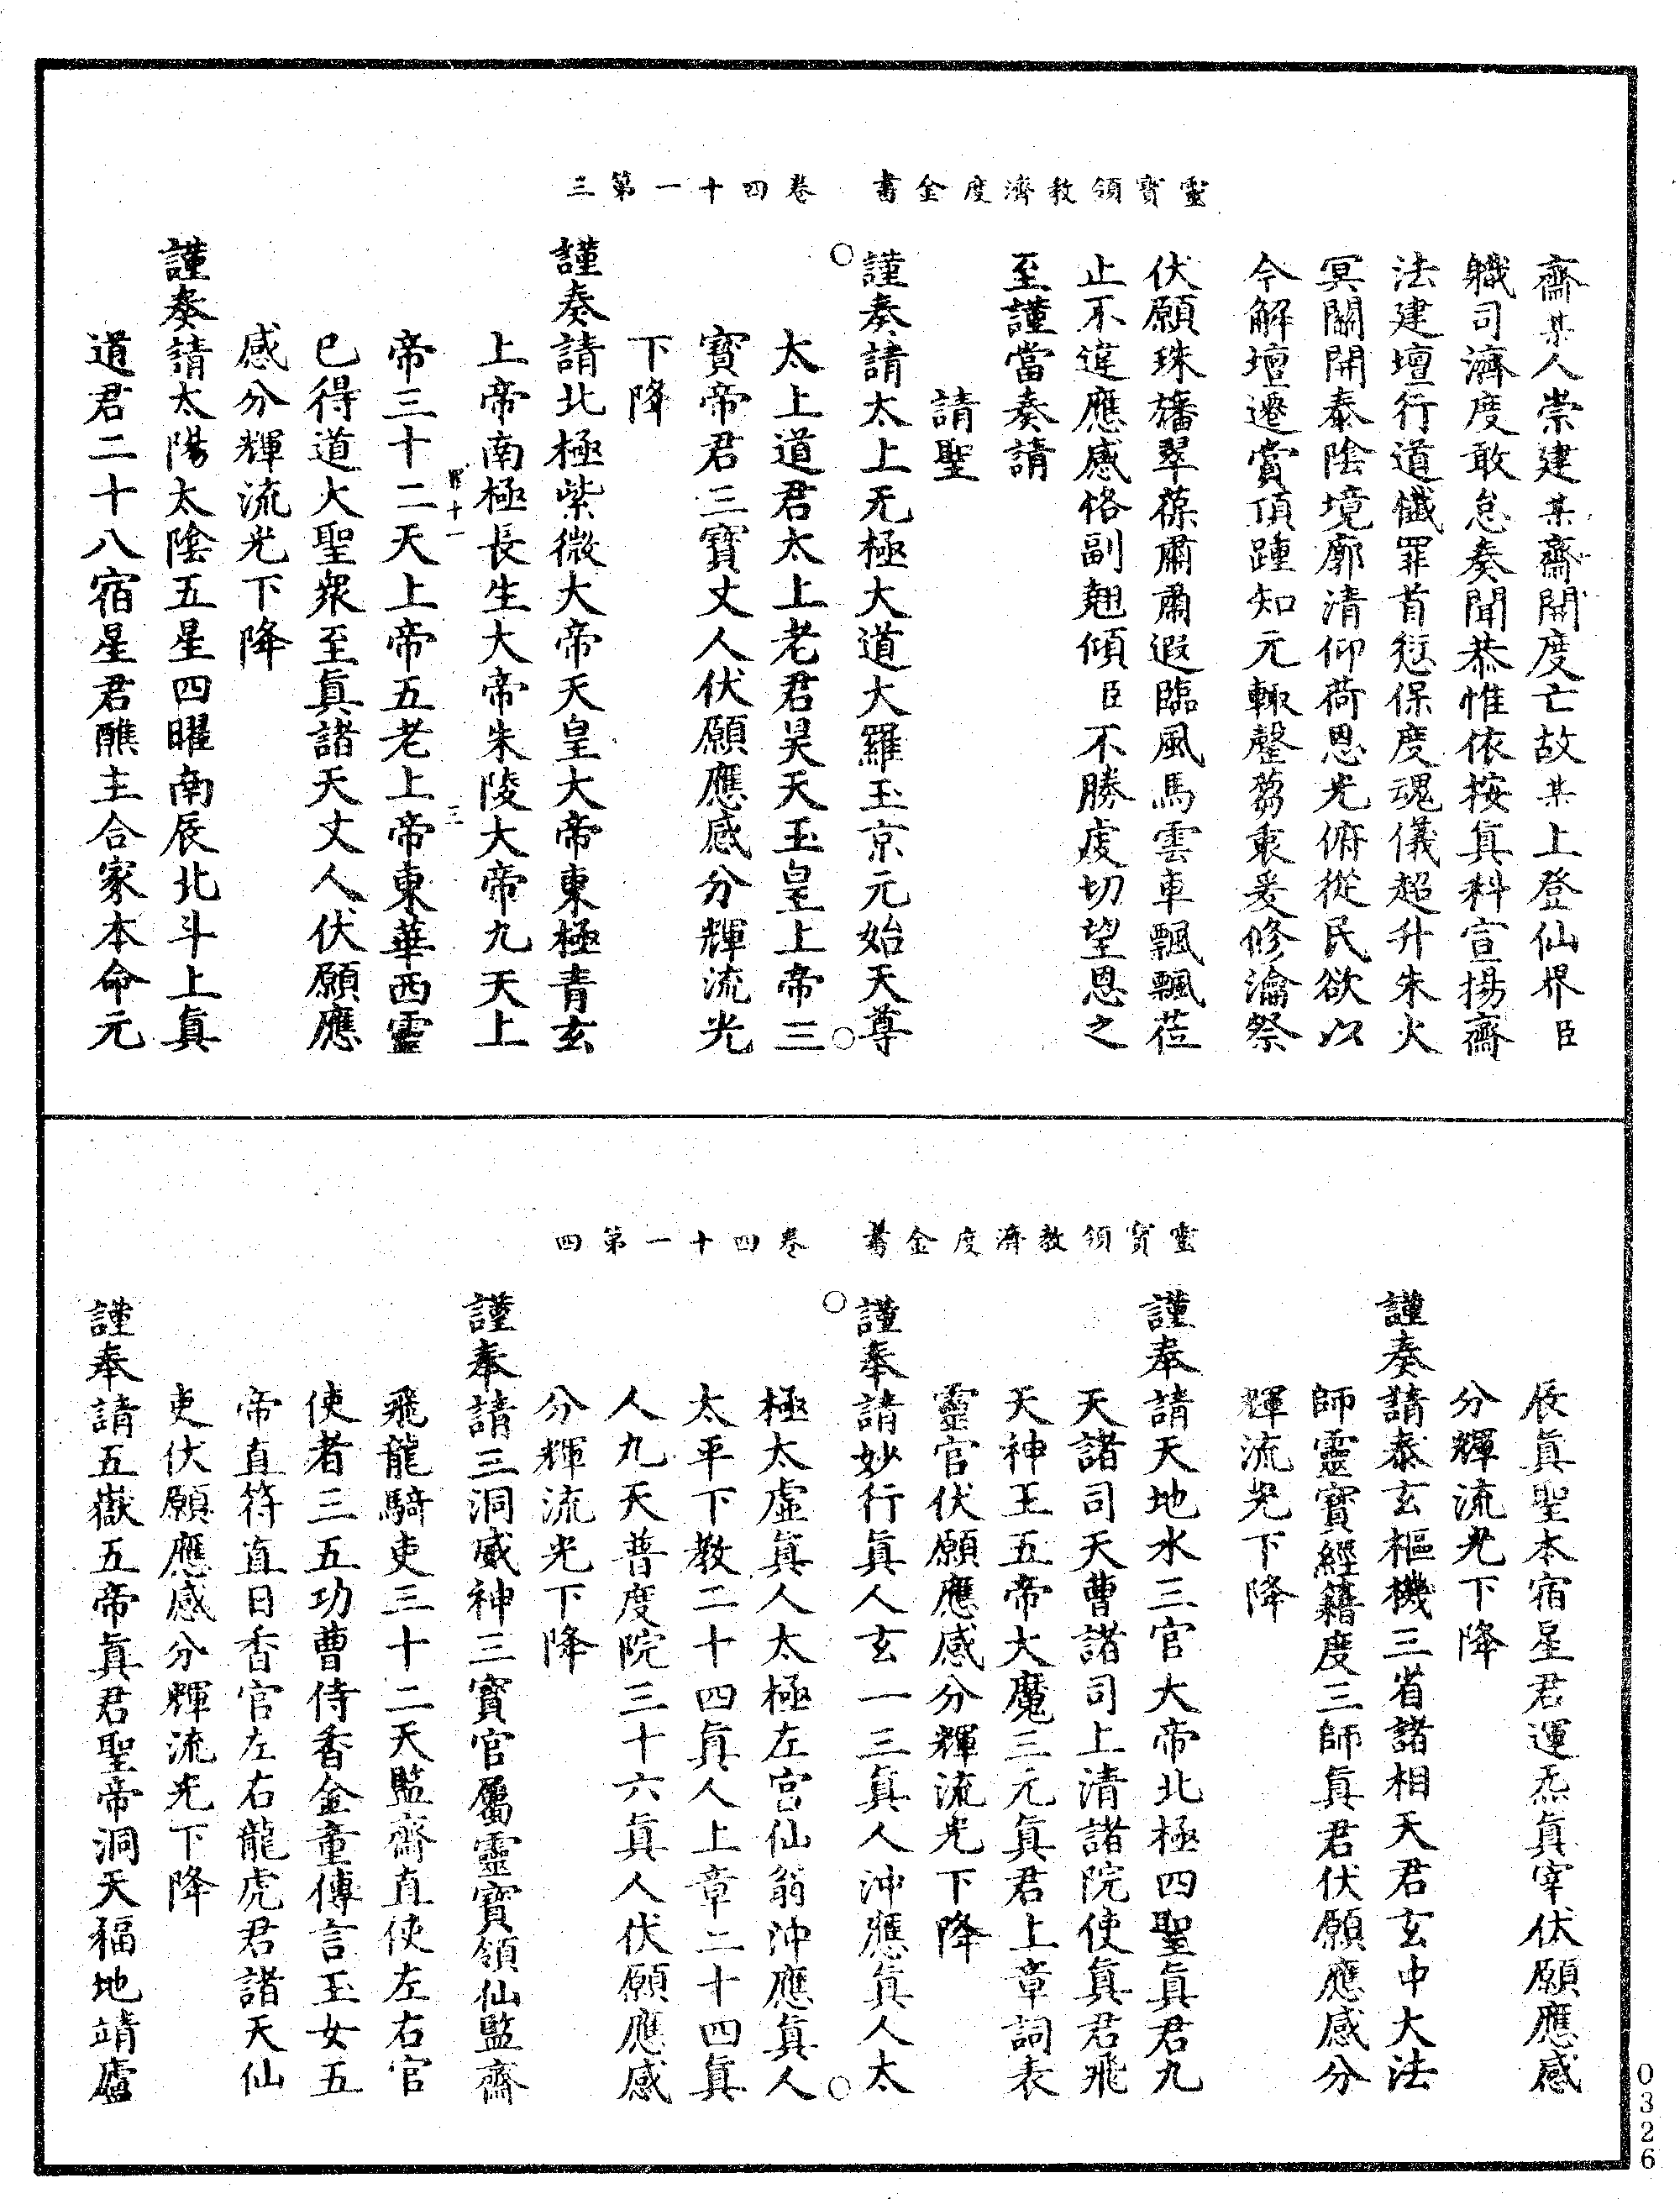 靈寶領教濟度金書　卷四十一第三
齋某人崇建某齋開度亡故某上登仙界臣
職司濟度敢怠奏聞恭惟依按真科宣揚齋
法建壇行道懺罪首愆保度魂儀超升朱火
冥關開泰陰境廓清仰荷恩光俯從民欲以
今解壇遷賞頂踵知元輒罄蒭衷爰修瀹祭
伏願珠旛翠葆肅肅遐臨風馬雲車飄飄莅
止不違應感恪副翹傾臣不勝虔切望恩之
至謹當奏請
請聖
○謹奏請太上无極大道大羅玉京元始天尊
太上道君太上老君昊天玉皇上帝三○
寶帝君三寶丈人伏願應感分輝流光
下降
謹奏請北極紫微大帝天皇大帝東極青玄
上帝南極長生大帝朱陵大帝九天上
界十一　三
帝三十二天上帝五老上帝東華西靈
已得道大聖衆至眞諸天丈人伏願應
感分輝流光下降
謹奏請太陽太陰五星四曜南辰北斗上眞
道君二十八宿星君醮主合家本命元
靈寶領教濟度金書　卷四十一第四
辰眞聖本宿星君運炁眞宰伏願應感
分輝流光下降
謹奏請泰玄樞機三省諸相天君玄中大法
師靈寶經籍度三師眞君伏願應感分
輝流光下降
謹奉請天地水三官大帝北極四聖眞君九
天諸司天曹諸司上清諸院使眞君飛
天神王五帝大魔三元眞君上章詞表
靈官伏願應感分輝流光下降
○謹奉請妙行眞人玄一三眞人沖應眞人太
極太虛眞人太極左宮仙翁沖應眞人○
太平下教二十四眞人上章二十四眞
人九天普度院三十六眞人伏願應感
分輝流光下降
謹奉請三洞威神三寶官屬靈寶領仙監齋
飛龍騎吏三十二天監齋直使左右官
使者三五功曹侍香金童傳言玉女五
帝直符直日香官左右龍虎君諸天仙
吏伏願應感分輝流光下降
謹奉請五嶽五帝眞君聖帝洞天福地靖廬
0326